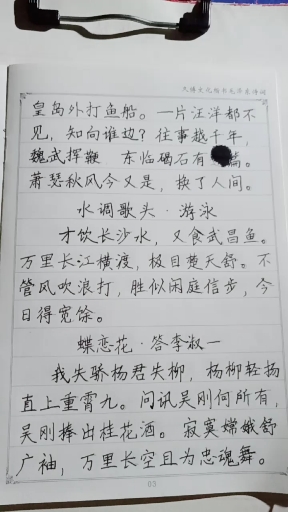 皇岛外打鱼船。一片汪洋都不
见，知向谁边？往事越千年，
魏武挥鞭 东临碣石有 篇。
萧瑟秋风今又是，换了人间。
水调歌头·游泳
才饮长沙水，又食武昌鱼。
万里长江横渡，极目楚天舒。不
管风吹浪打，胜似闲庭信步，今
日得宽馀。
蝶恋花·答李淑一
我失骄杨君失柳，杨柳轻扬
直上重霄九。问讯吴刚何所有，
吴刚捧出桂花酒。寂寞嫦娥舒
广袖，万里长空且为忠魂舞。
03